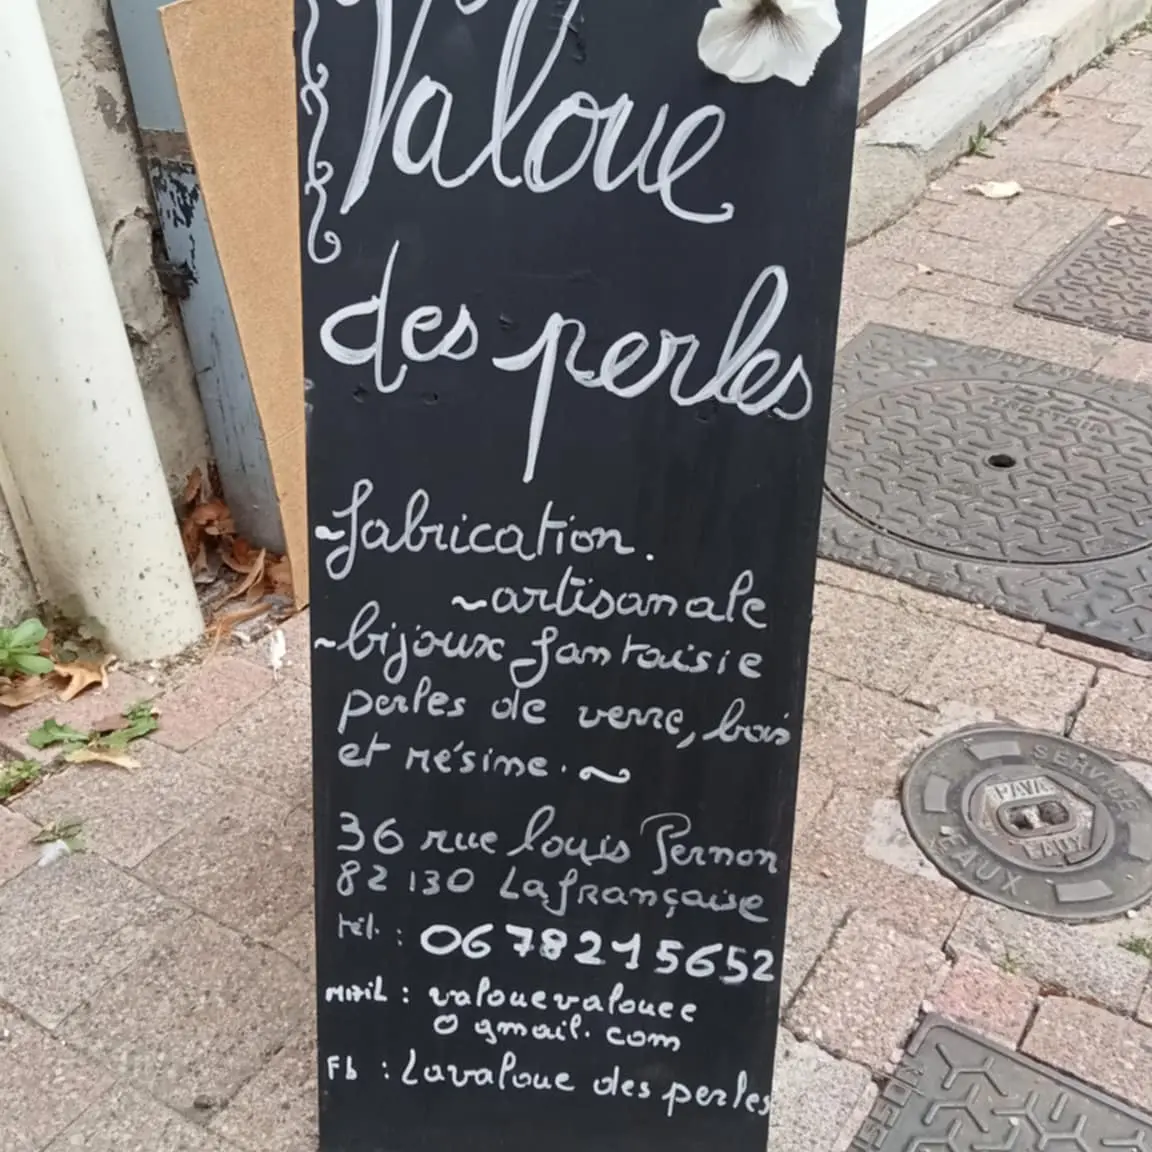 Valoue
des perles
~fabrication.
~artisanale
~bijoux fantaisie
perles de verre, bois
et résine. ~
36 rue louis Pernon
82 130 Lafrançaise
tél. : 0678215652
MAIL : valouevalouee
@ gmail. com
Fb : Lavaloue des perles
SERVICE
PAVA
EAUX
EAUX